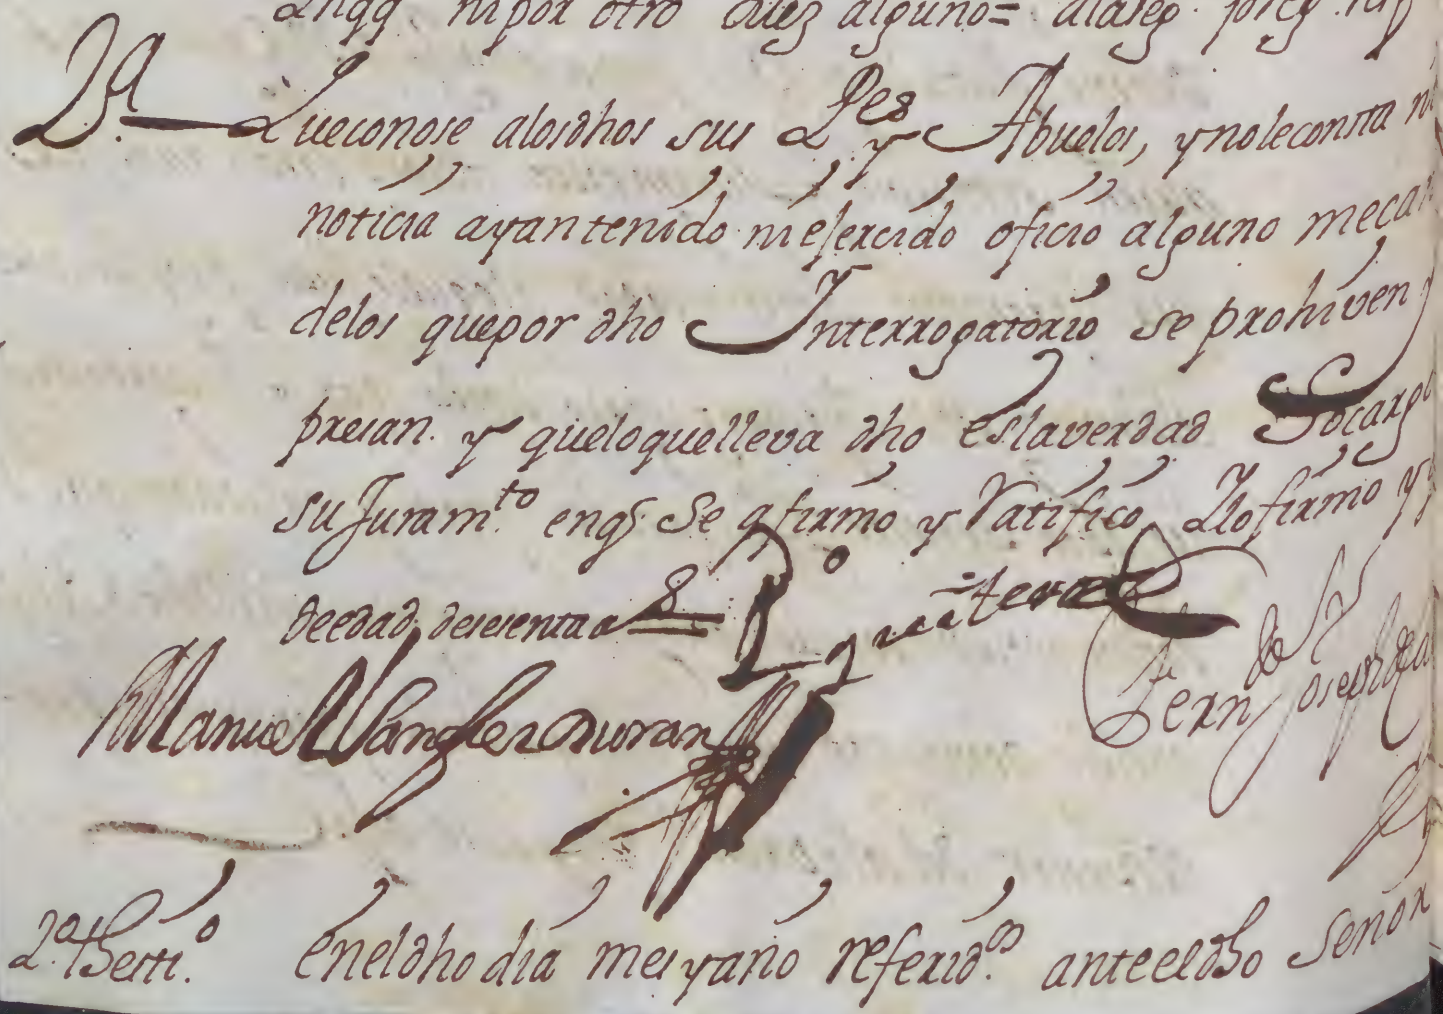 ni por otro Juez alguno =
2ª Que conose alos dhos sus P.es y Abuelos, y no le consta ni
noticia ayan tenido ni ejercido oficio alguno mecan
delos que por dho Interrogatorio se prohiven y
presan. y que lo que lleva dho es la verdad Socargo
su Juram.to en q se afirmo y Ratifico, Ylo firmo y
de edad de sesenta a.s
Manuel Duran
Fern
2º testi.º En el dho dia mes y año referid.os ante el dho Señor